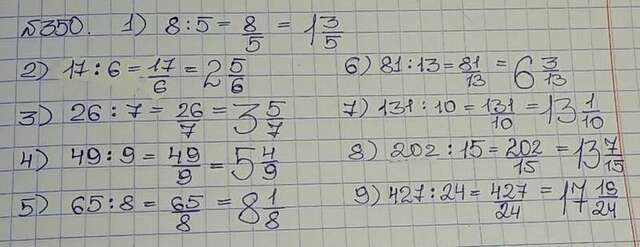 №350. 1) 8:5 = 8/5 = 1 3/5
2) 17:6 = 17/6 = 2 5/6
3) 26:7 = 26/7 = 3 5/7
4) 49:9 = 49/9 = 5 4/9
5) 65:8 = 65/8 = 8 1/8
6) 81:13 = 81/13 = 6 3/13
7) 131:10 = 131/10 = 13 1/10
8) 202:15 = 202/15 = 13 7/15
9) 427:24 = 427/24 = 17 19/24